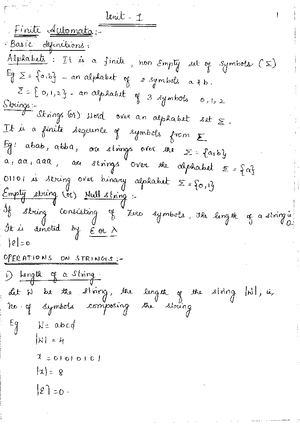 Unit - 1
1
Finite Automata:-
Basic definitions:
Alphabets: It is a finite, non Empty set of symbols (Σ)
Eg Σ = {a,b} - an alphabet of 2 symbols a & b.
Σ = {0,1,2} - an alphabet of 3 symbols 0,1,2
Strings:-
Strings (or) Word over an alphabet set Σ.
It is a finite sequence of symbols from Σ.
Eg: abab, abba, are strings over the Σ = {a,b}
a, aa, aaa, are strings over the alphabet Σ = {a}
01101 is string over binary alphabet Σ = {0,1}
Empty string (or) Null string:-
If string consisting of zero symbols, the length of a string is 0.
It is denoted by ε or λ
|ε| = 0
OPERATIONS ON STRINGS:-
i) Length of a string:
Let W be the string, the length of the string |W|, is
no. of symbols composing the string
Eg W = abcd
|W| = 4
x = 01010101
|x| = 8
|ε| = 0.